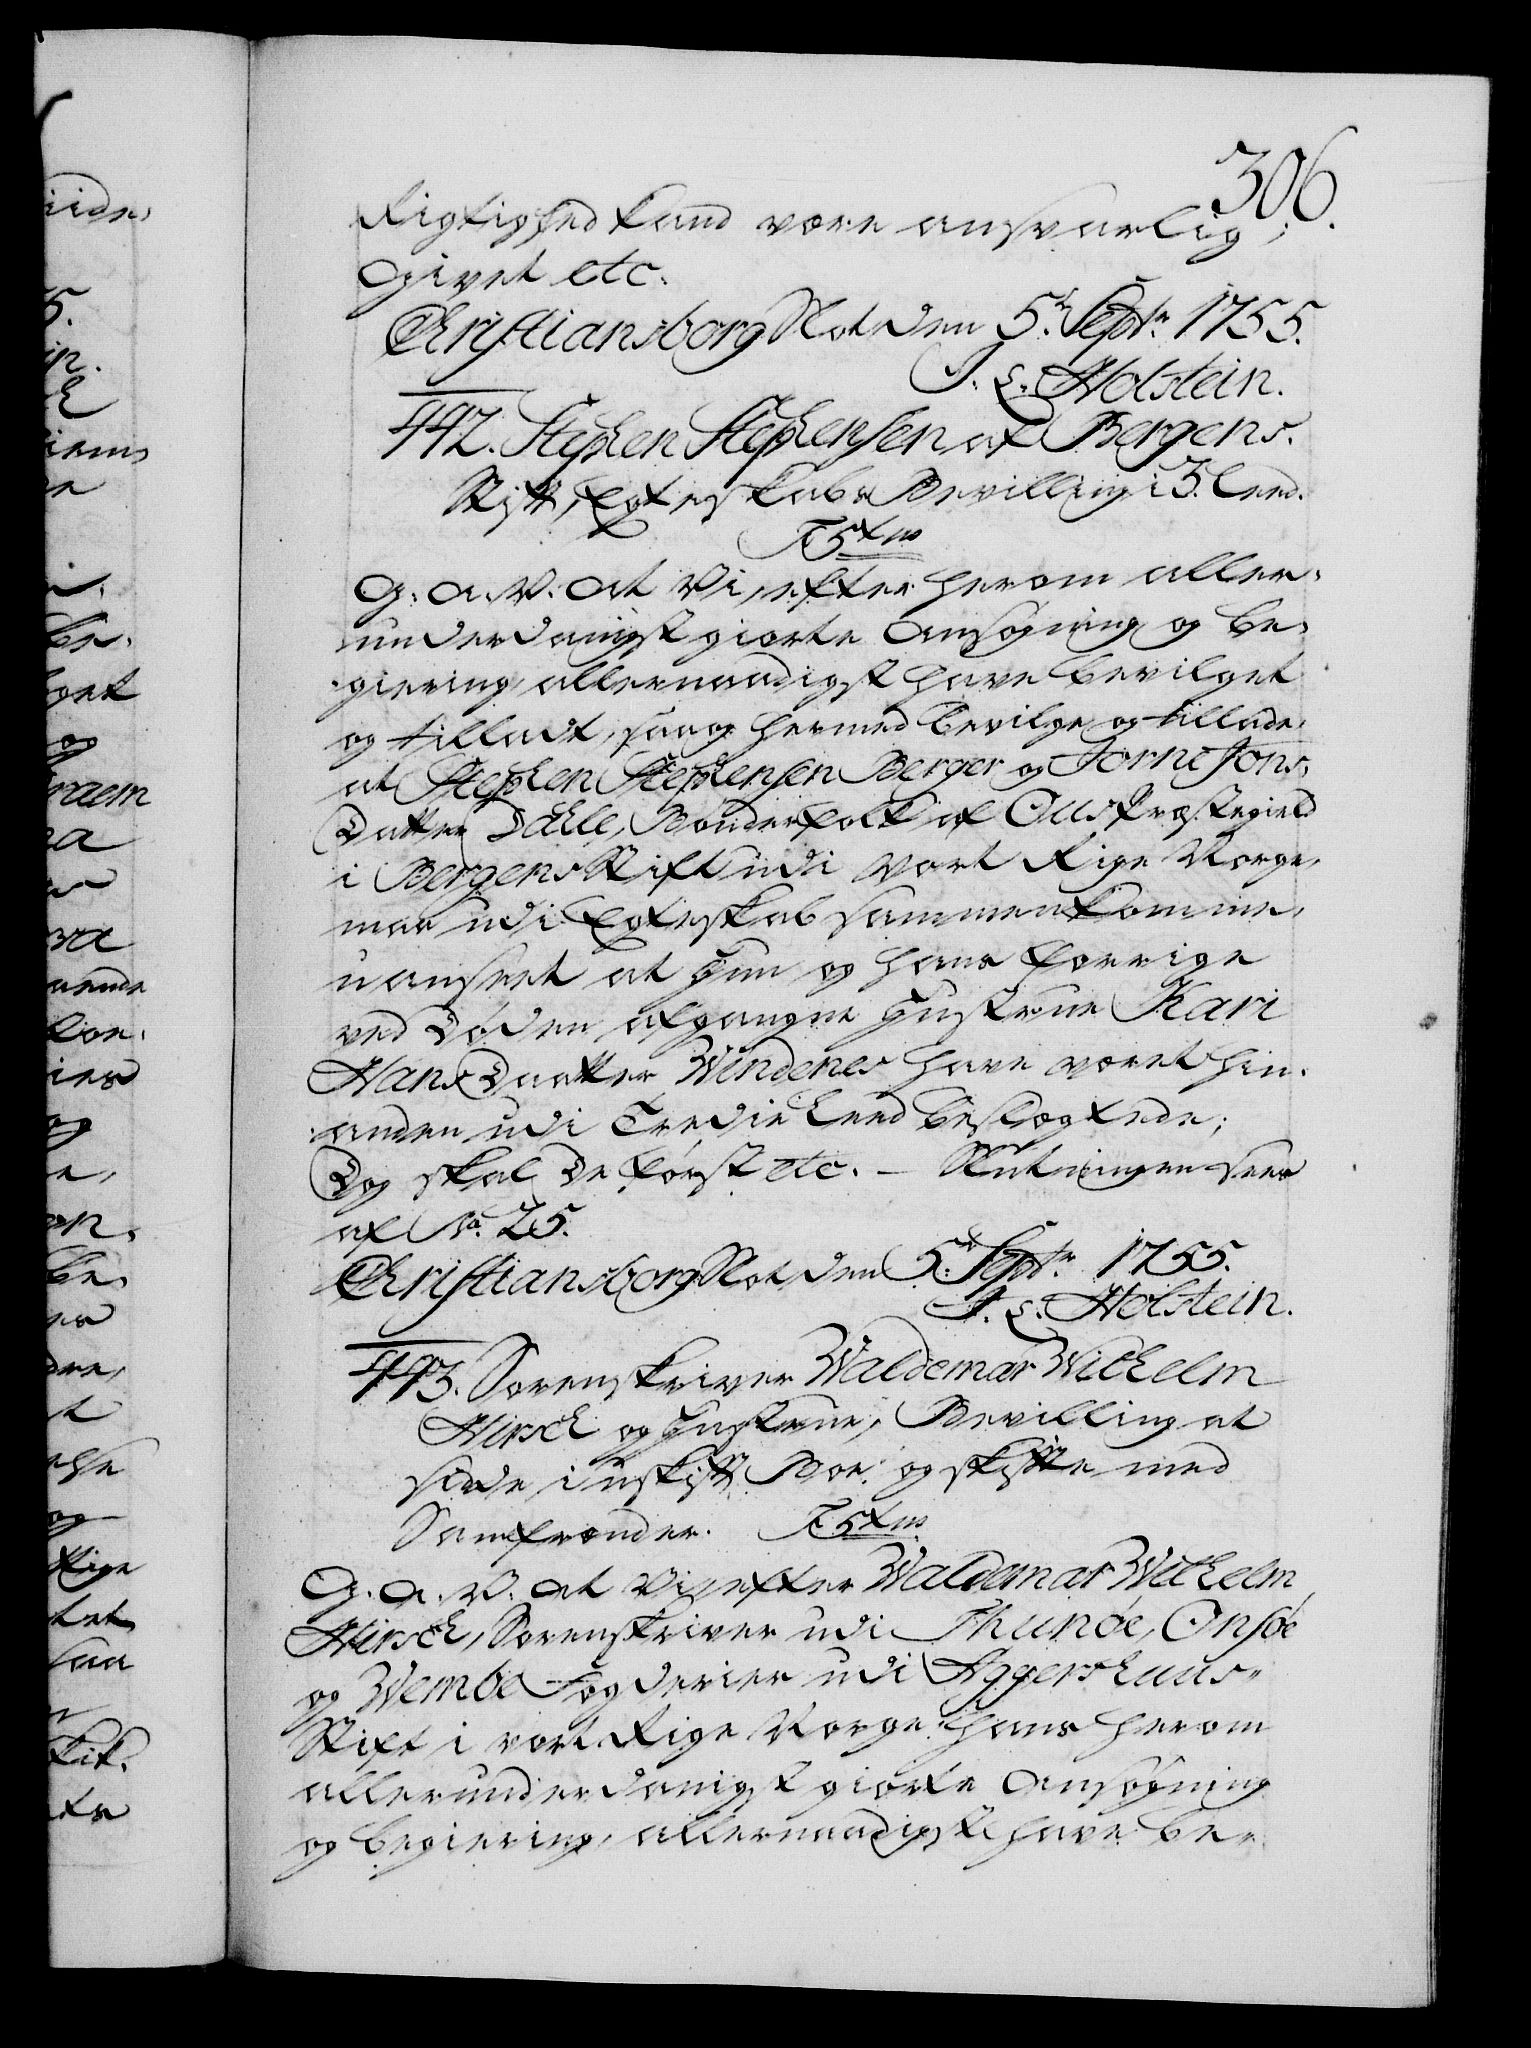 306.
Rigtighed kand være ansvarlig;
givet etc.
Christiansborg Slot den 5te Septr. 1755.
J. L. Holstein.
442. Stephen Stephensen af Bergens
Stift, Egteskabs Bevilling i 3. Leed.
F 5tus
G. A. V. at Vi, efter herom aller-
underdanigst giorte Ansøgning og be-
giering, allernaadigst have bevilget
og tilladt, saa og hermed bevilge og tillade,
at Stephen Stephensen Berger og Jorne Jons
Datter Dahle, Bønderfolk af Ous Præstegield
i Bergens Stift udi Vort Rige Norge,
maa udi Egteskab sammenkomme,
uanseet at Hun og hans forrige
ved Døden afgangne Hustrue Kari
Hans Daatter Windenes have været hin-
anden udi Tredie Leed beslægtede;
Dog skal De først etc. – Slutningen sees
af No. 25.
Christiansborg Slot den 5te Septr. 1755.
J. L. Holstein.
443. Sorenskriver Waldemar Wilhelm
Hirsch og Hustrue, Bevilling at
sidde i uskift Boe og skifte med
Samfrender. F 5tus
G. A. V. at Vi, efter Waldemar Wilhelm
Hirsch, Sorenskriver udi Thunøe, Onsøe
og Wembe Fogderier udi Aggershuus-
Stift i vort Rige Norge, hans herom
allerunderdanigst giorte Ansøgning
og begiering, allernaadigst have be-